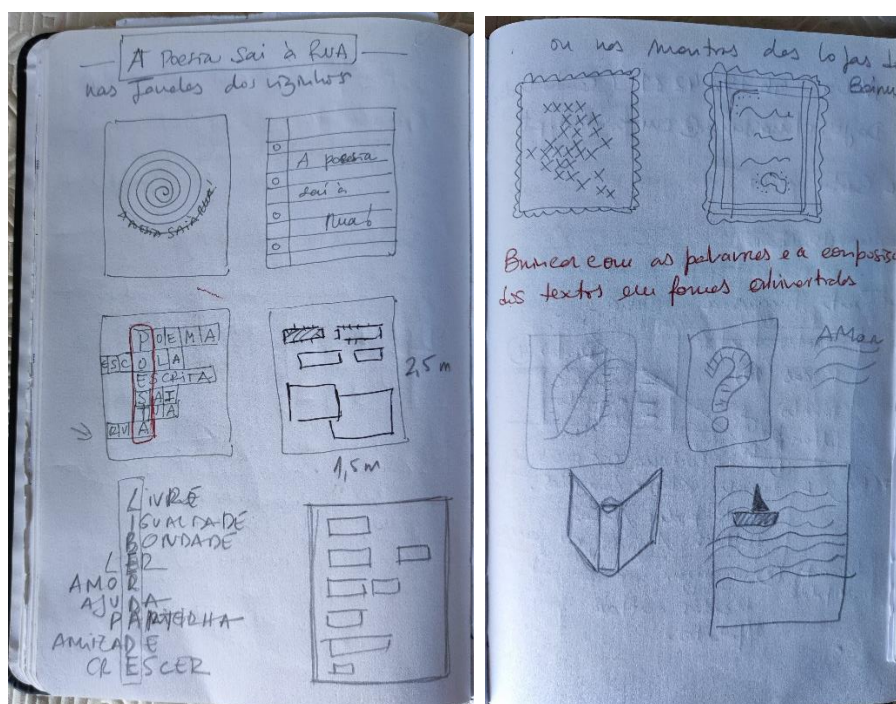 A Poesia Sai à RUA
nas Janelas dos vizinhos
A POESIA SAI À RUA!
A poesia
sai à
Rua!
POEMA
ESCOLA
ESCRITA
SAI
RUA
2,5 m
1,5 m
LIVRE
IGUALDADE
BONDADE
LER
AMOR
AJUDA
PARTILHA
AMIZADE
CRESCER
ou nas montras das lojas do
Bairro
XXXX
Brincar com as palavras e a composição
dos textos em formas divertidas
AMOR